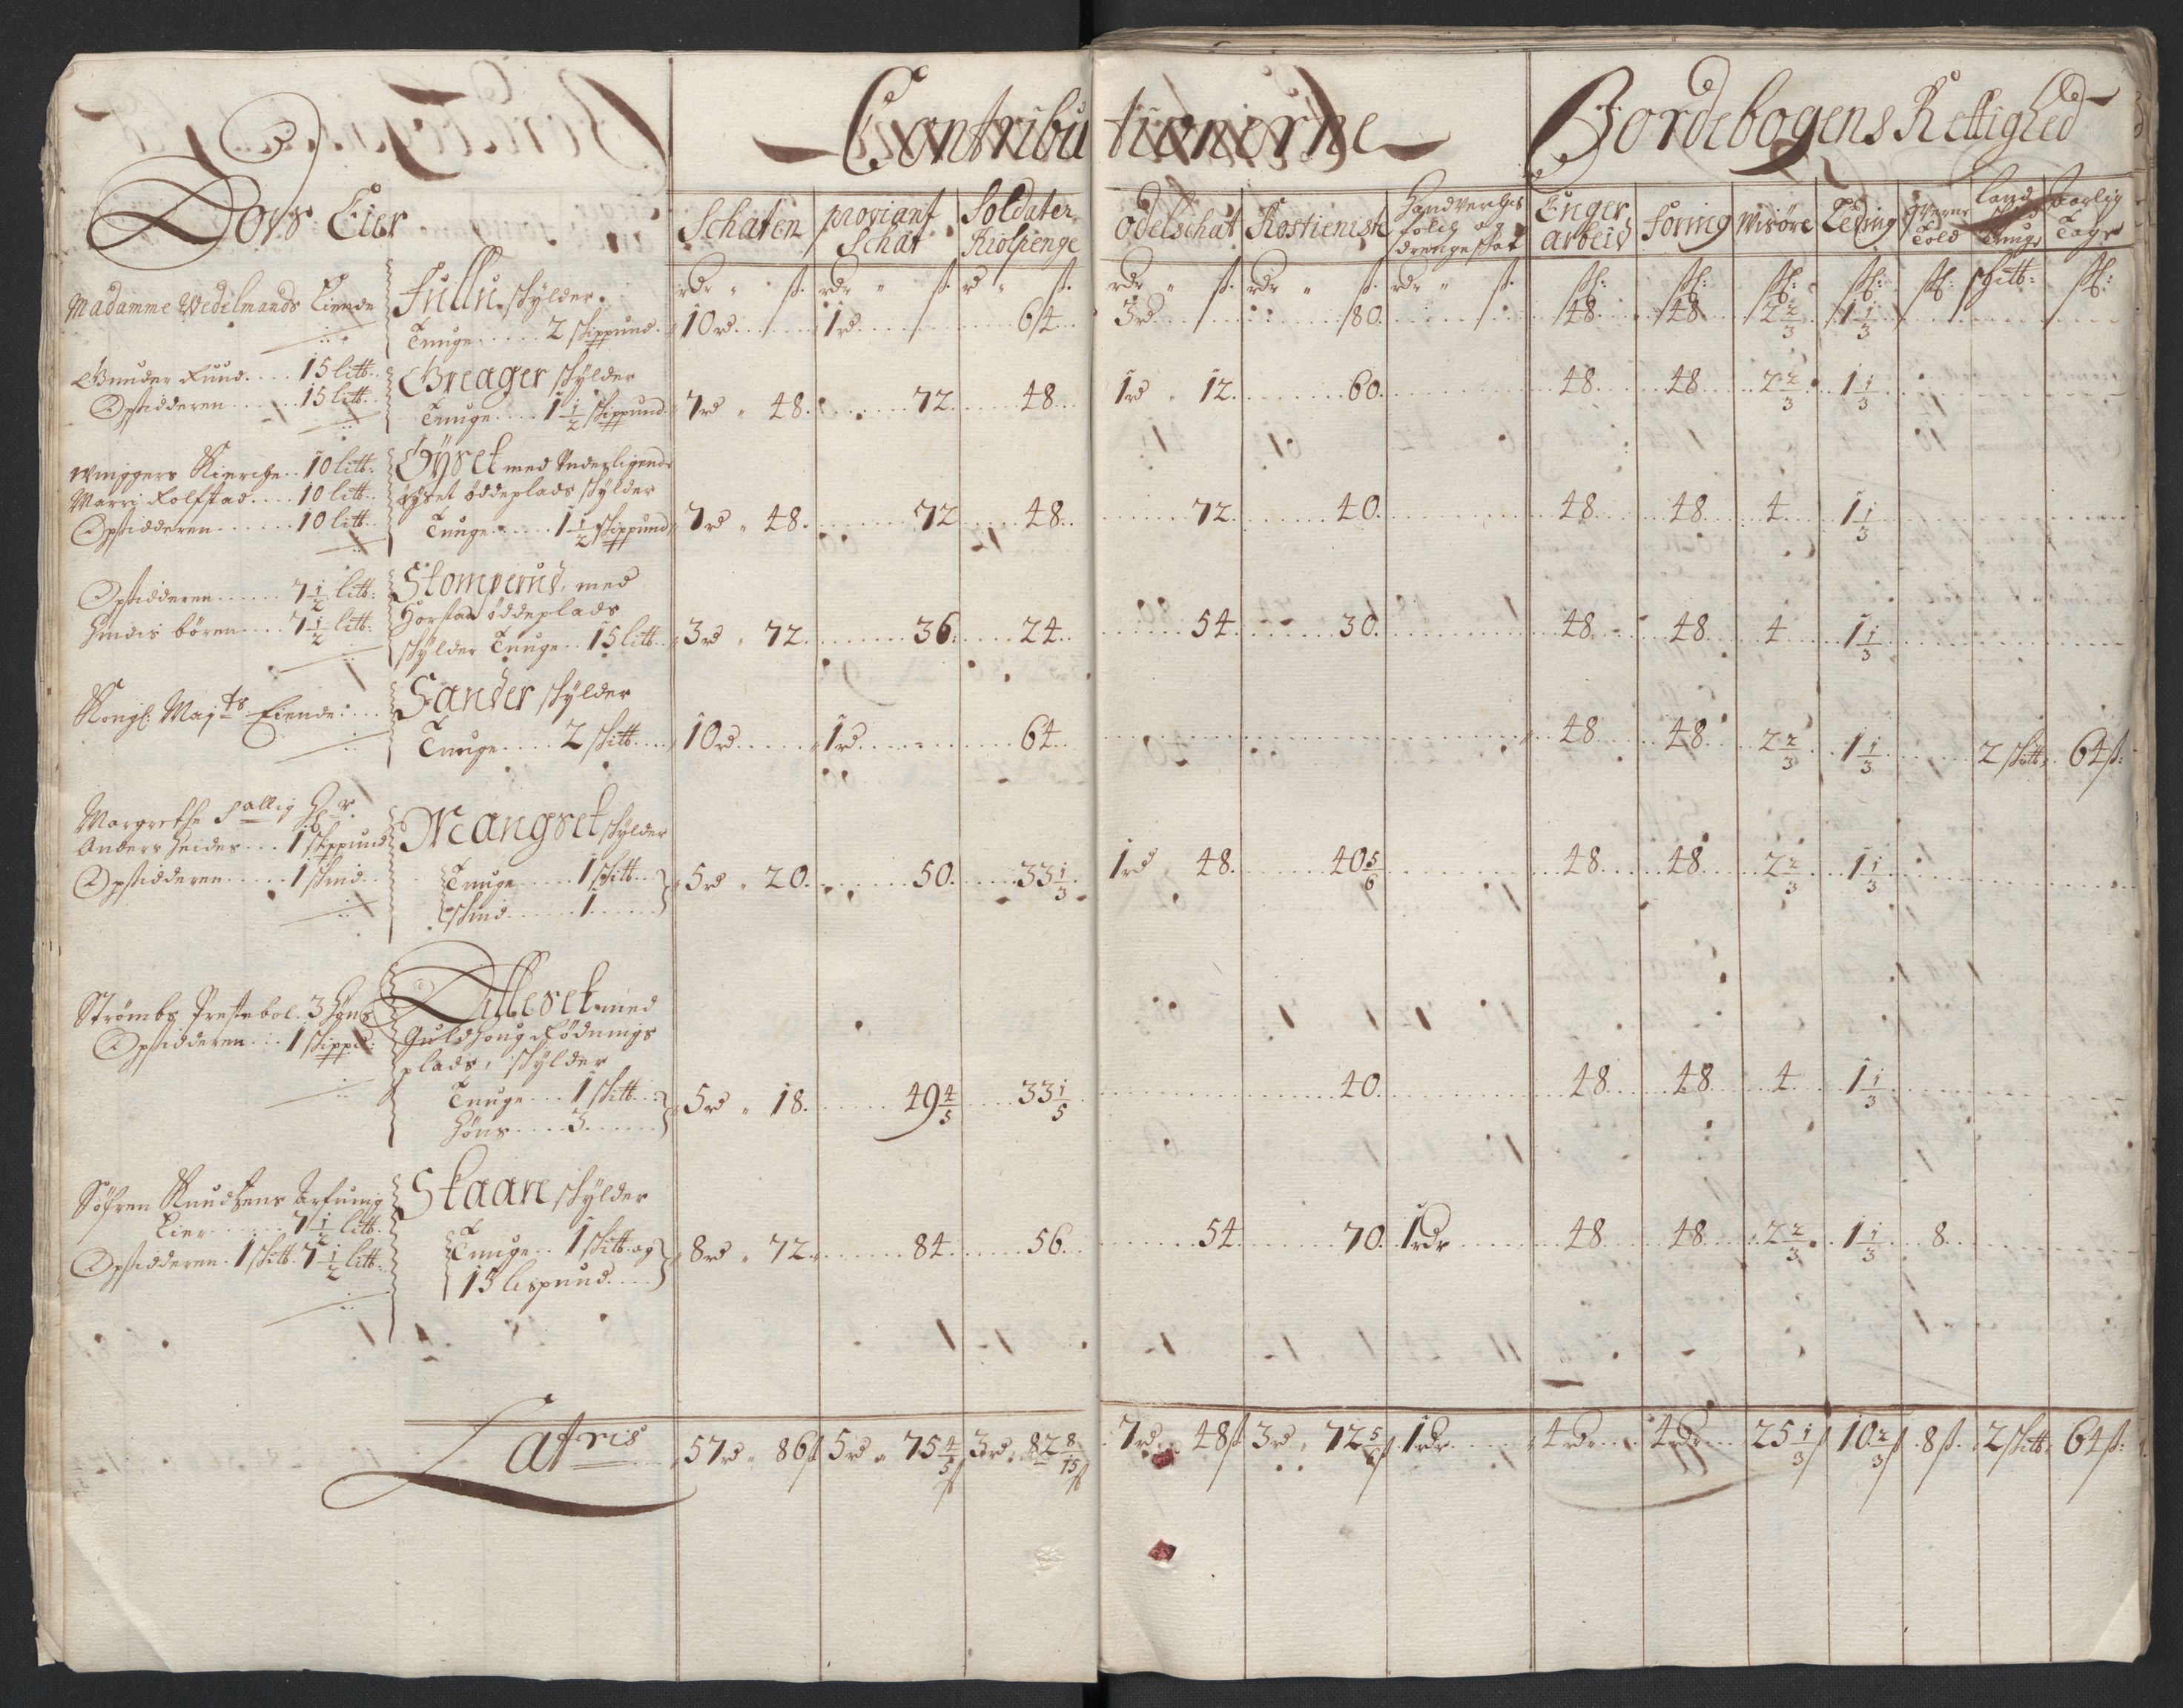 Contributionerne
Jordebogens Rettighed
Dors Eier
Schaten
proviant Schat
Soldater Kiolpenge
Odelschat
Rostieniste
Handverchs folch og drengeschat
Enger arbeid
Foring
Wisöre
Leding
Told
Land
Aarlig Tage
rdr " ß. rdr " ß. rd " ß. rdr " ß. rdr " ß. rdr " ß. ß: ß: ß: ß: ß: sch℔: ß:
Madamme Wedelmands Eiende
Fullu schylder
Tunge 2 schippund. 10 rd 1 rd 64 3 rd 80. 48. 48 2 2/3 1 1/3
Gunder Lund 15 litt.
Opsidderen 15 litt.
Greager schylder
Tunge 1 1/2 schippund 7 rd " 48. 72. 48. 1 rd " 12. 60. 48. 48. 2 2/3 1 1/3
Winggers Kierche 10 litt.
Marri Rolfstad 10 litt.
Opsidderen 10 litt.
Öyset med Underligende
öyset öddeplads schylder
Tunge 1 1/2 schippund 7 rd " 48. 72 48. 72. 40. 48. 48. 4 1 1/3
Opsidderen 7 1/2 litt.
hindis bören 7 1/2 litt.
Stomperud, med
Horstad öddeplads
schylder Tunge 15 litt. 3 rd " 72. 36. 24. 54. 30. 48. 48. 4 1 1/3
Kongl: Maj:ts Eiende:
Sander schylder
Tunge 2 schtt. 10 rd 1 rd 64. 48. 48. 2 2/3 1 1/3 2 schtt. 64 ß:
Margrethe Sallig Hr.
Anders heides 1 schippund
Opsidderen 1 schind
Mangset schylder
Tunge 1 schtt.
schind 1 5 rd " 20. 50. 33 1/3 1 rd " 48. 40 5/6 48. 48. 2 2/3 1 1/3
Strömbs Prestebol. 3 höns
Opsidderen 1 schippd:
Dilleset med
Guldhoug Rödnings
plads, schylder
Tunge 1 schtt.
höns 3 5 rd " 18. 49 4/5 33 1/5 40. 48. 48 4 1 1/3
Söfren Knudzens Arfuing
Eier 7 1/2 litt.
Opsidderen 1 schtt. 7 1/2 litt.
Skaare schylder
Tunge 1 schtt. og
15 lispund 8 rd " 72. 84. 56. 54. 70. 1 rdr 48. 48. 2 2/3 1 1/3 8.
Latris 57 rd " 86 ß 5 rd " 75 4/5 ß 3 rd " 82 8/15 ß 7 rd " 48 ß 3 rd " 72 5/6 ß 1 rdr 4 rdr 4 rdr 25 1/3 ß 10 2/3 ß 8 ß. 2 schtt. 64 ß: